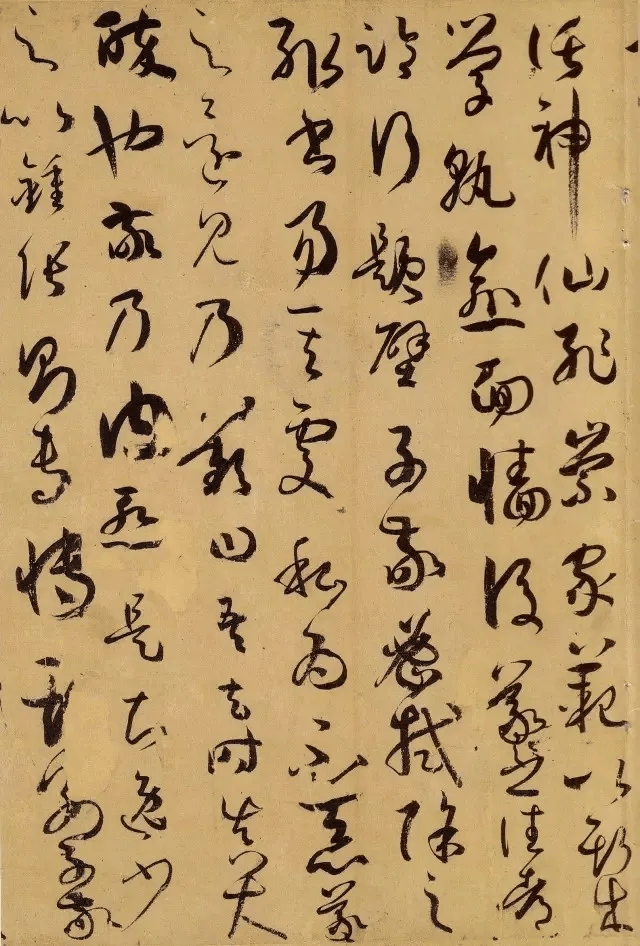 託神仙恥崇家範以斯成
學孰愈面牆後羲之往都
臨行題壁子敬密拭除之
輒書易其處私為不惡羲
之還見乃歎曰吾去時真大
醉也敬乃內慚是知逸少
之比鍾張則專博斯別子敬